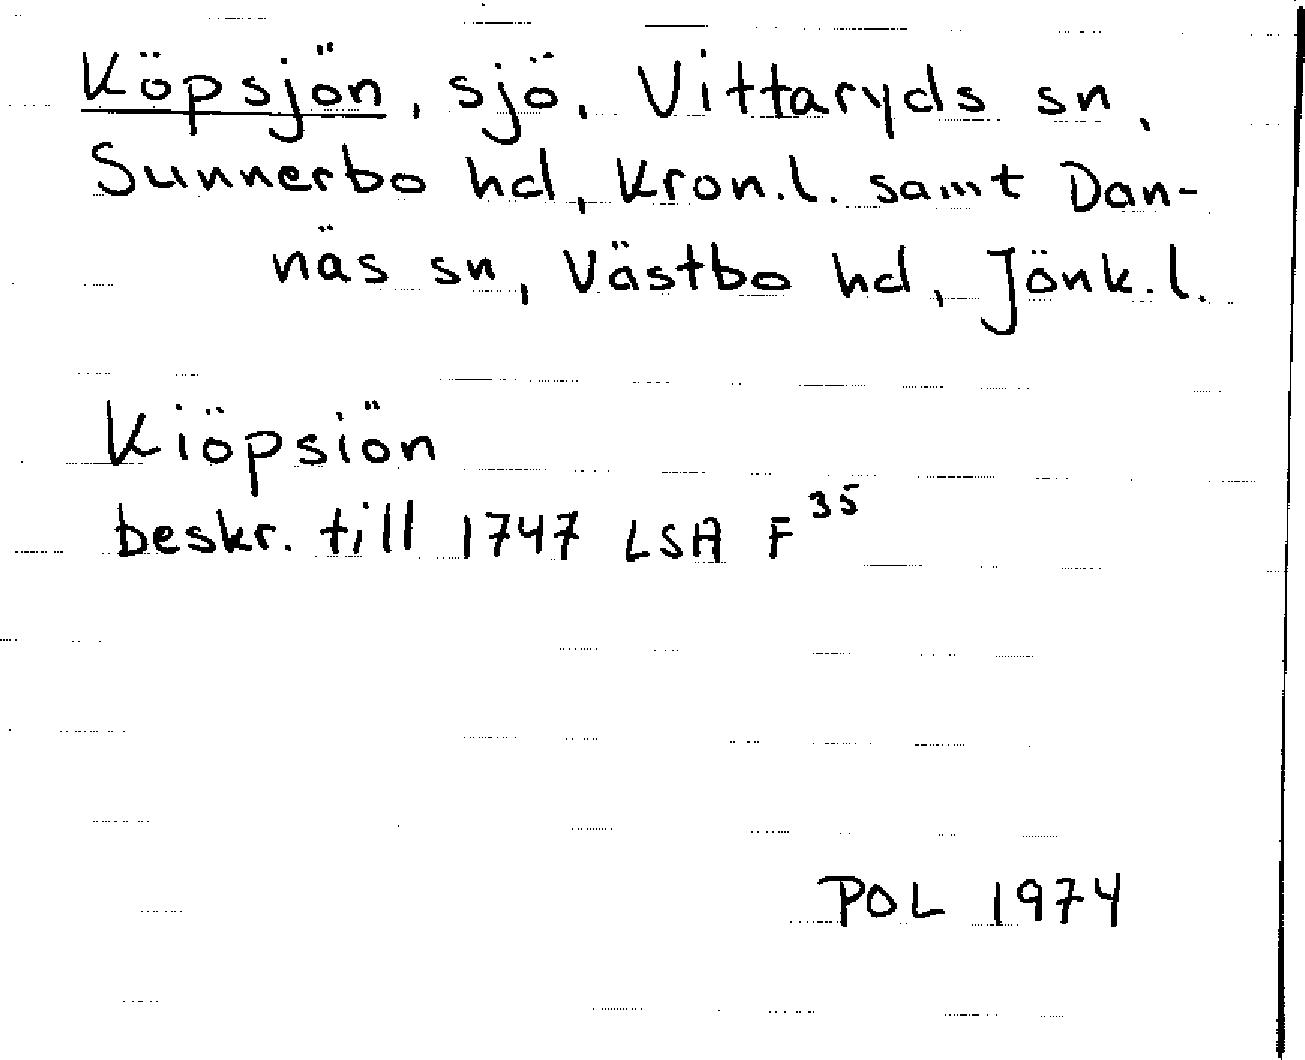 Köpsjön, sjö, Vittaryds sn,
Sunnerbo hd, Kron.l. samt Dan-
näs sn, Västbo hd, Jönk.l.
Kiöpsiön
beskr. till 1747 LSA F 35
POL 1974